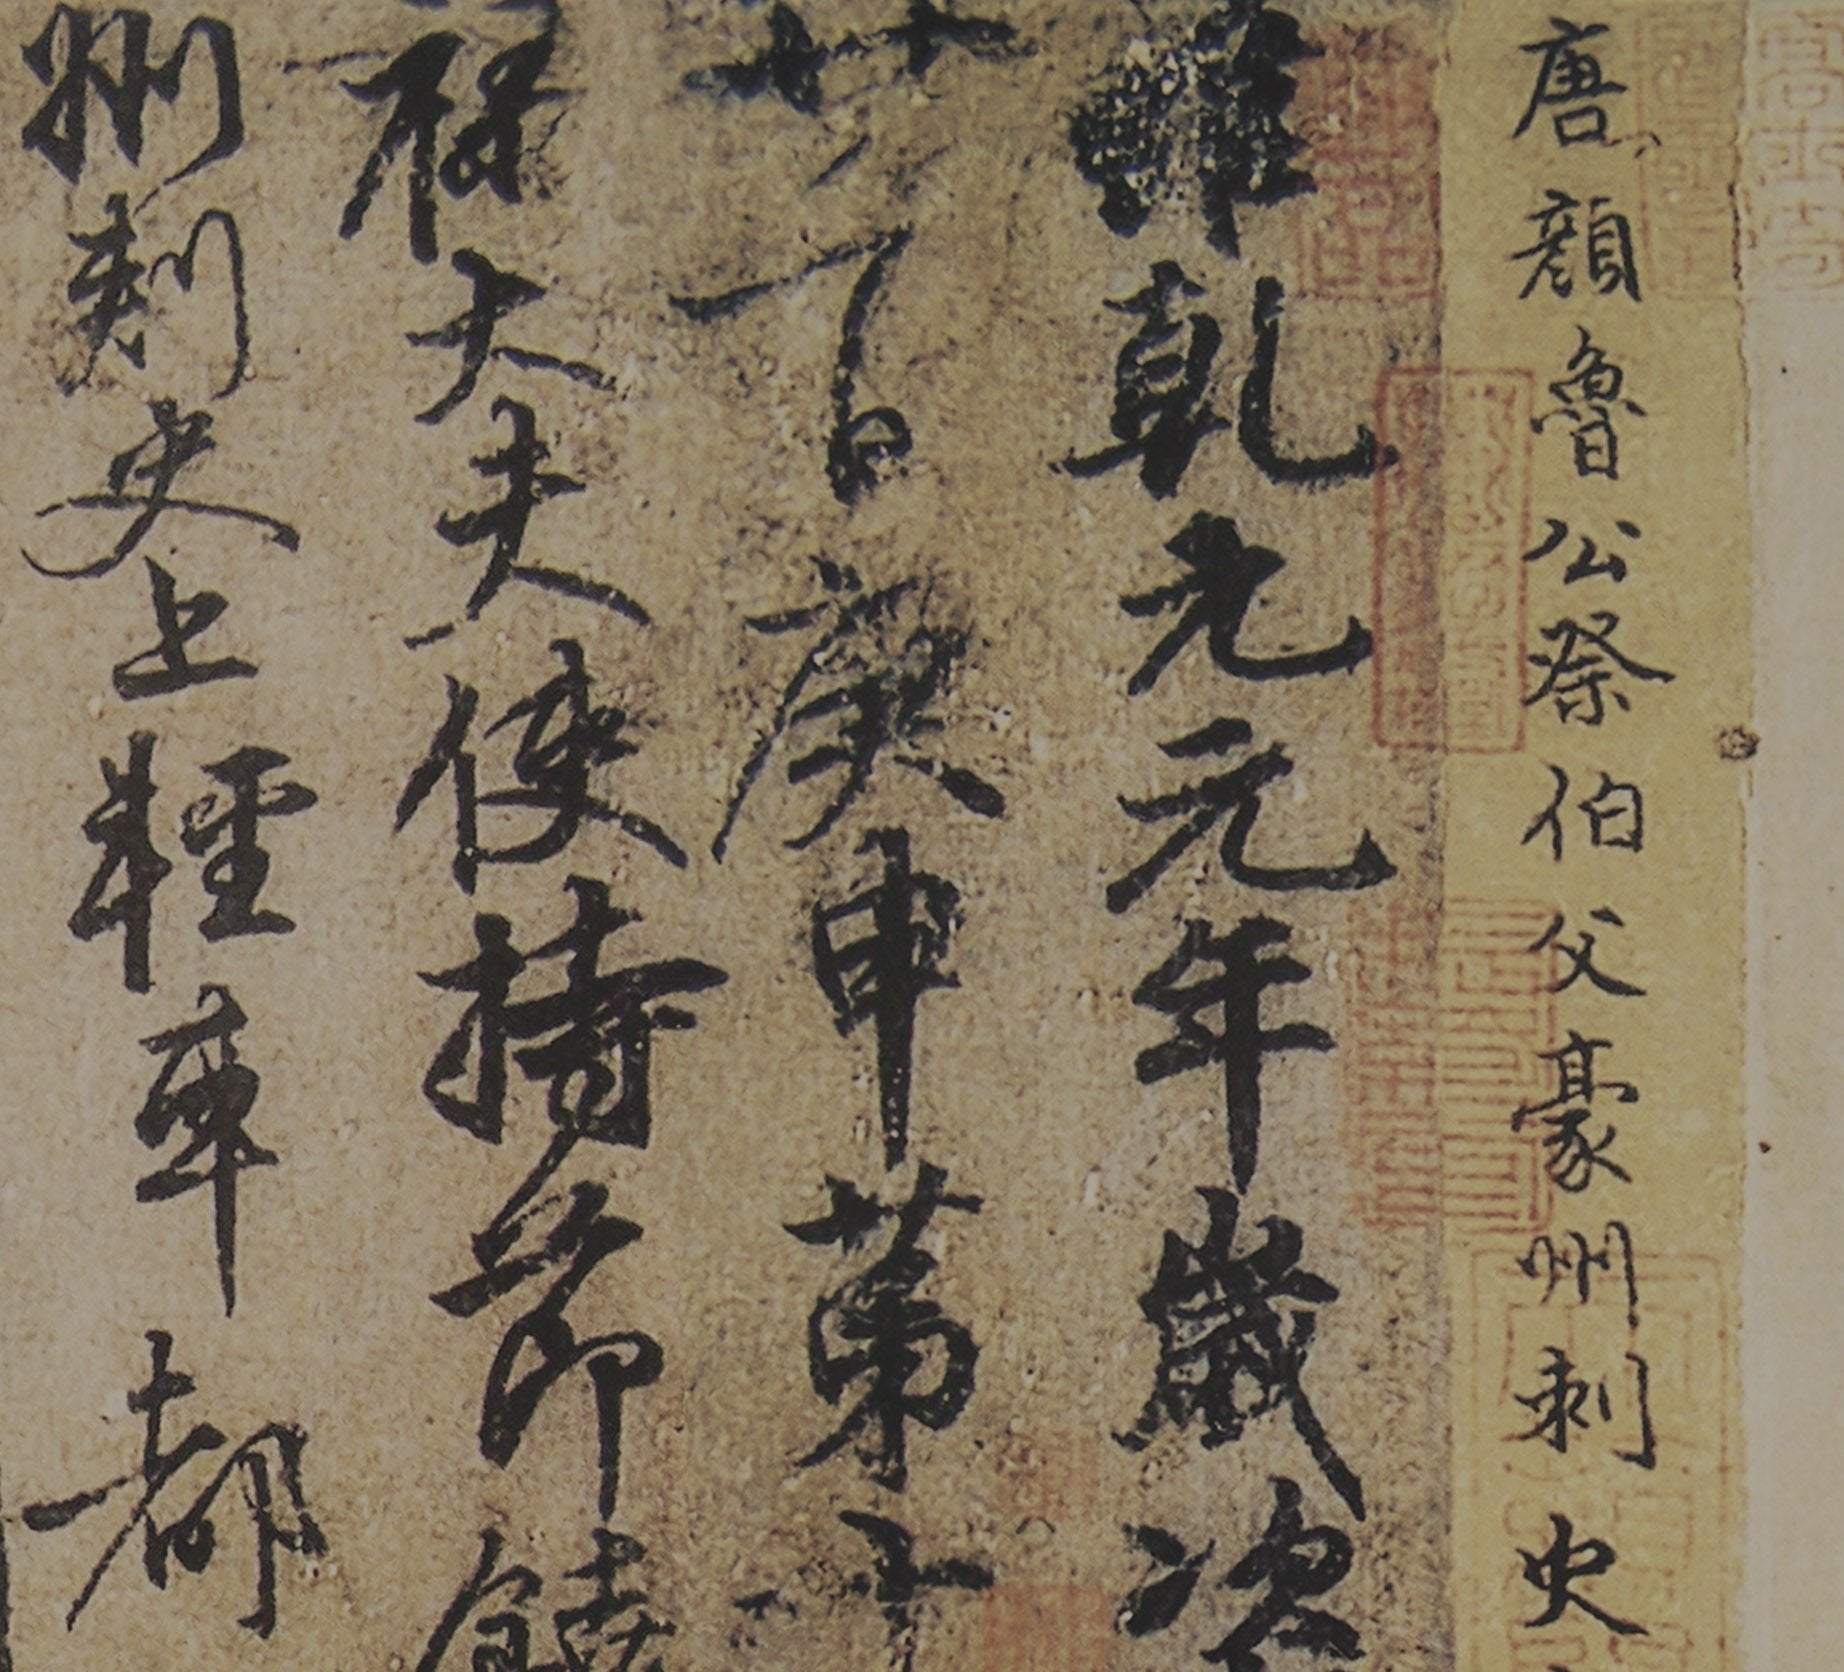 唐顏魯公祭伯父豪州刺史
維乾元元年歲次
廿一日庚申第十
祿大夫使持節饒
州刺史上輕車都